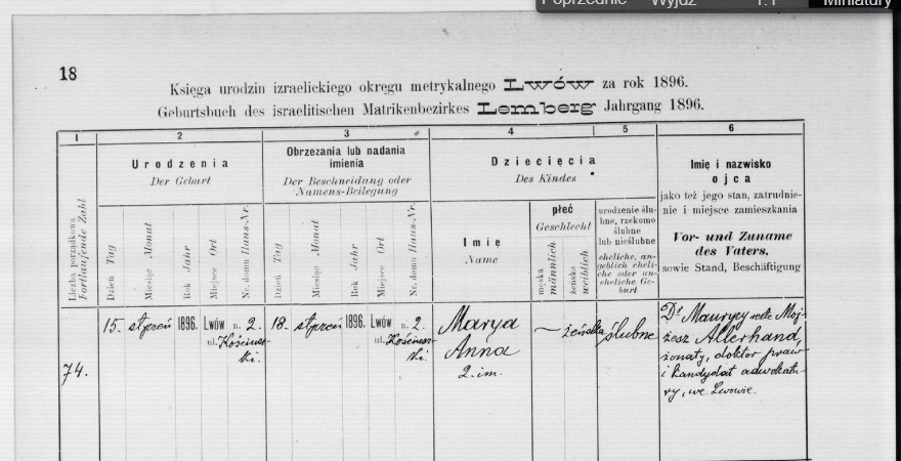 Poprzednie Wyjdź 1:1 Miniatury
18
Księga urodzin izraelickiego okręgu metrykalnego Lwów za rok 1896.
Geburtsbuch des israelitischen Matrikenbezirkes Lemberg Jahrgang 1896.
1 2 3 4 5 6
Liczba porządkowa
Fortlaufende Zahl
Urodzenia
Der Geburt
Dzień Tag
Miesiąc Monat
Rok Jahr
Miejsce Ort
Nr. domu Haus-Nr.
Obrzezania lub nadania
imienia
Der Beschneidung oder
Namens-Beilegung
Dzień Tag
Miesiąc Monat
Rok Jahr
Miejsce Ort
Nr. domu Haus-Nr.
Dziecięcia
Des Kindes
Imię
Name
płeć
Geschlecht
męska
männlich
żeńska
weiblich
urodzenie ślu-
bne, rzekomo
ślubne
lub nieślubne
eheliche, an-
geblich eheli-
che oder un-
eheliche Ge-
burt
Imię i nazwisko
ojca
jako też jego stan, zatrudnie-
nie i miejsce zamieszkania
Vor- und Zuname
des Vaters,
sowie Stand, Beschäftigung
74.
15. styczeń 1896. Lwów n. 2.
ul. Kościusz-
ki.
18. styczeń 1896. Lwów n. 2.
ul. Kościusz-
ki.
Marya
Anna
2. im.
żeńska
ślubne
Dr Maurycy vel Moj-
żesz Allerhand,
żonaty, doktor praw
i kandydat adwokatu-
ry, we Lwowie.